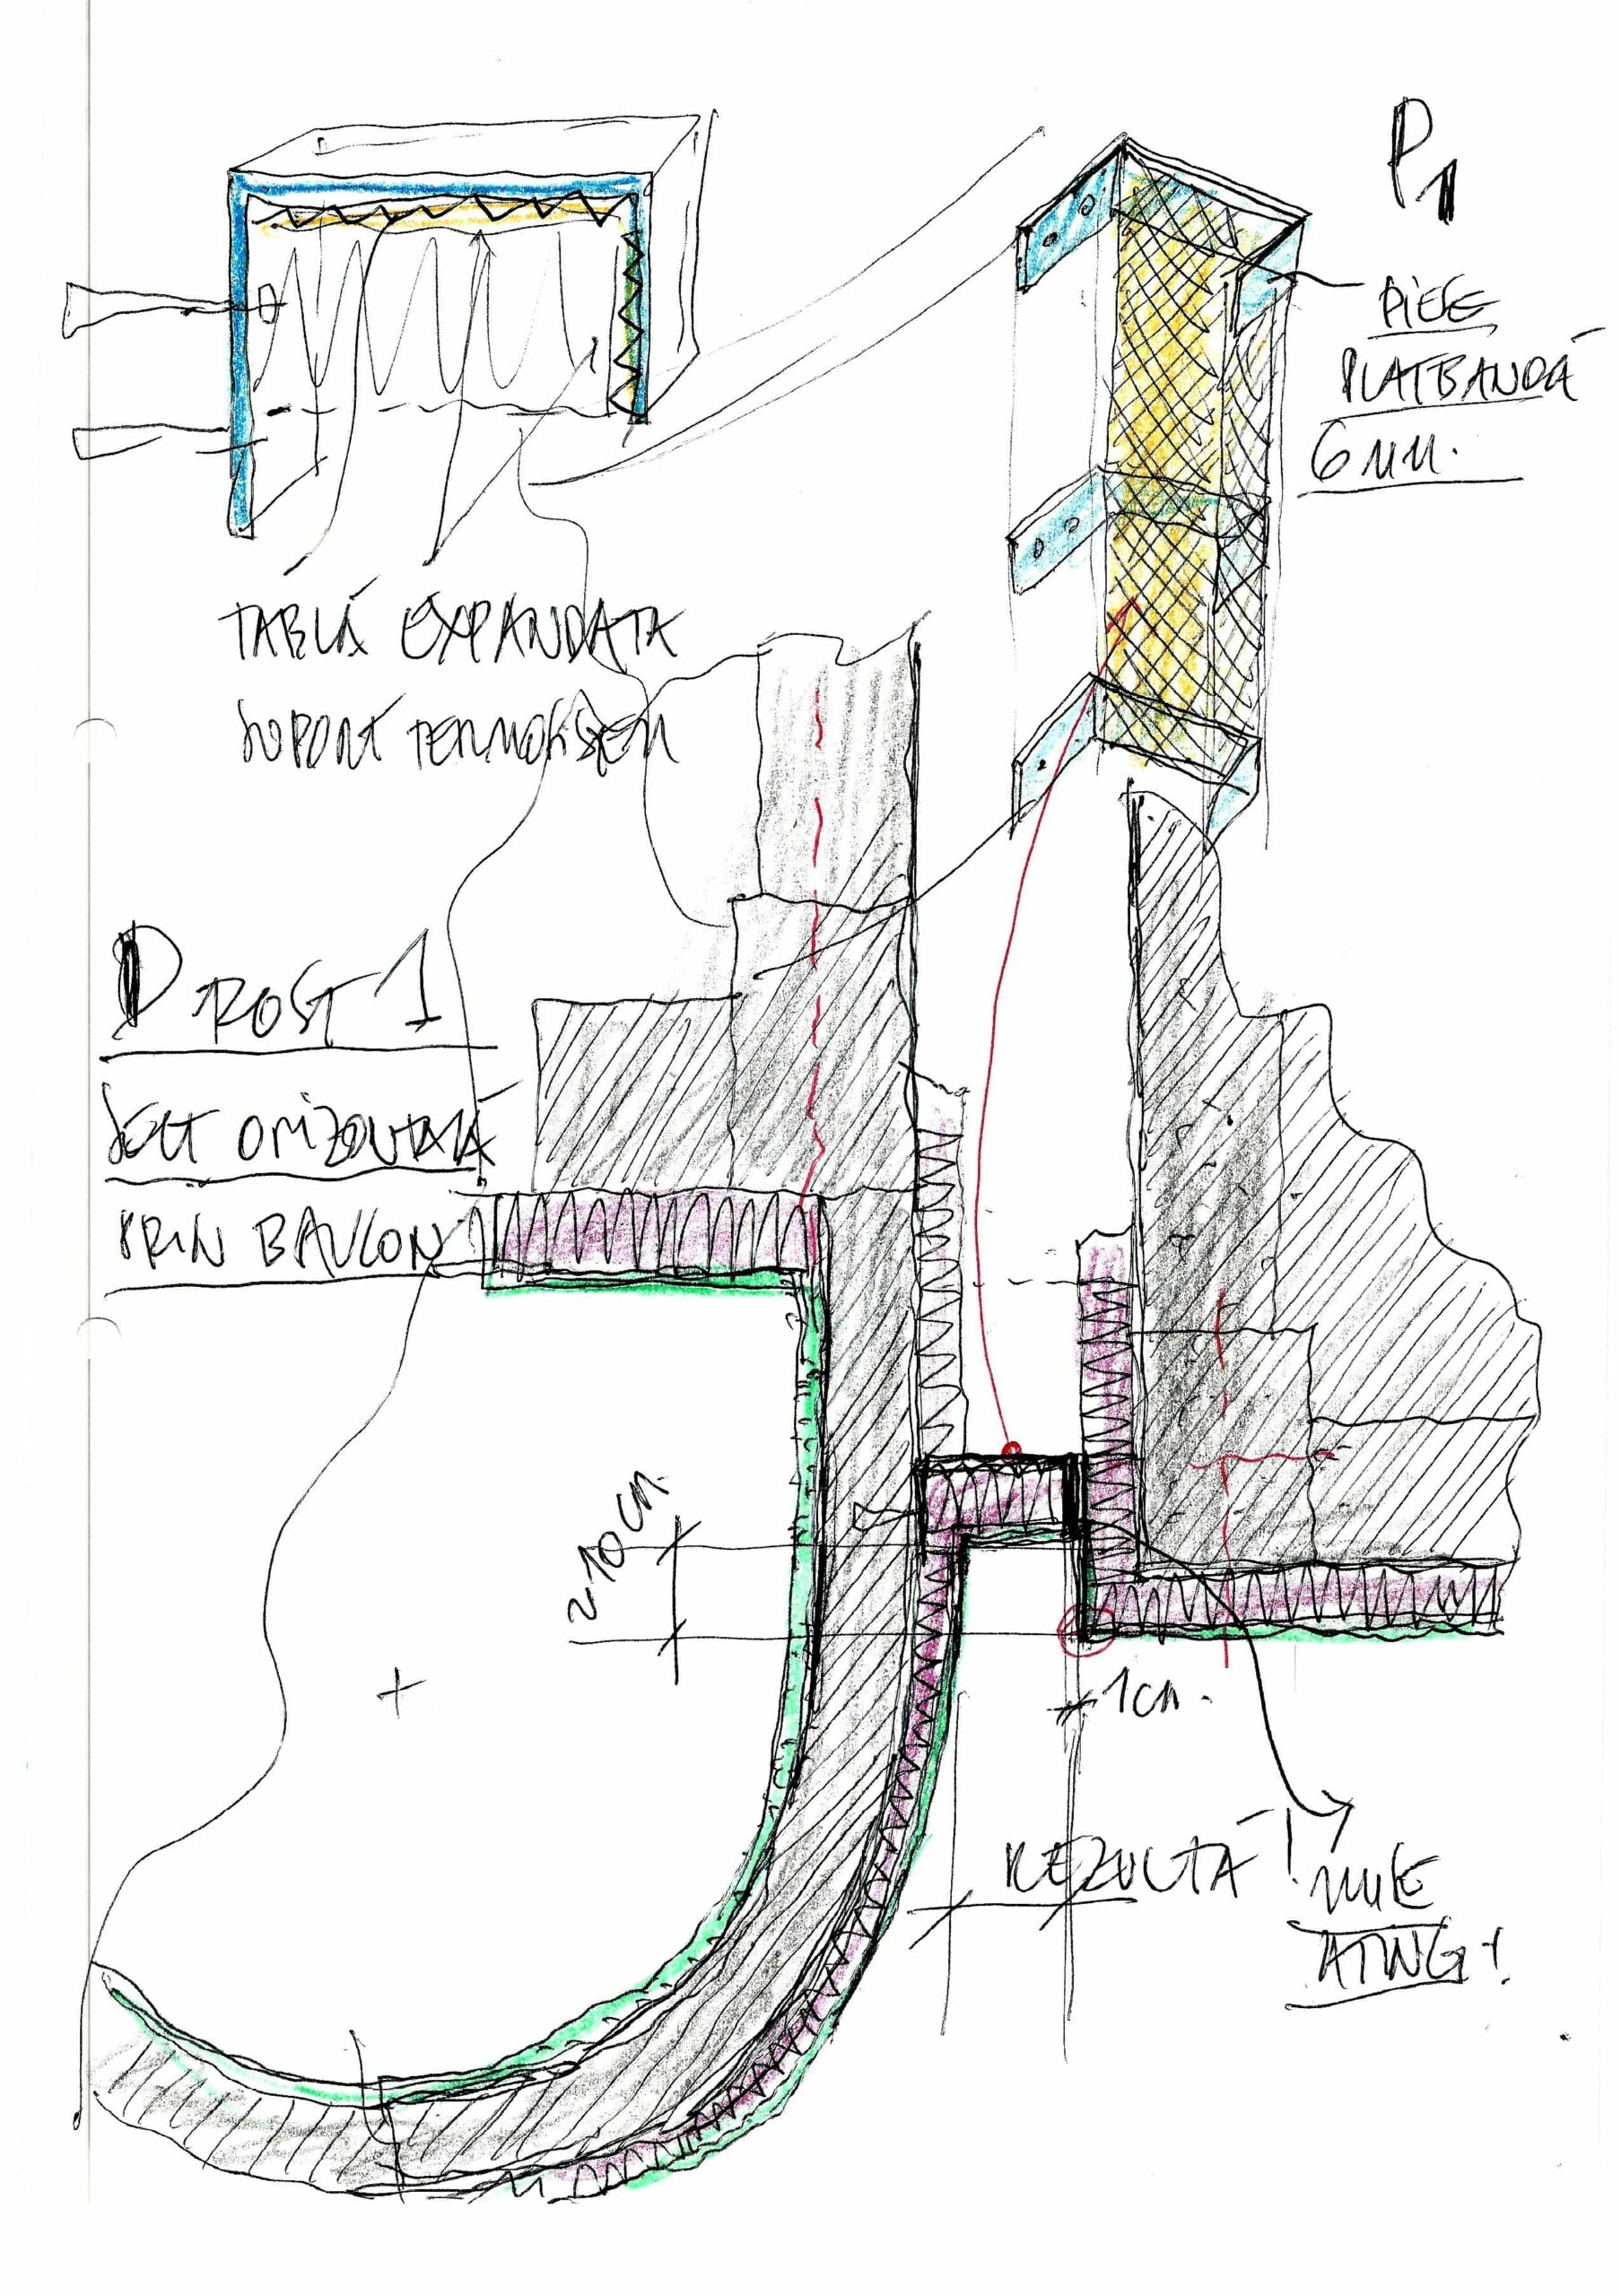 P1
PIESE
PLATBANDĂ
6 MM.
TABLĂ EXPANDATA
SUPORT TERMOSISTEM
D ROST 1
SECT ORIZONTALĂ
PRIN BALCON
≥10 CM.
1 CM.
REZULTĂ!
NU SE
ATING!